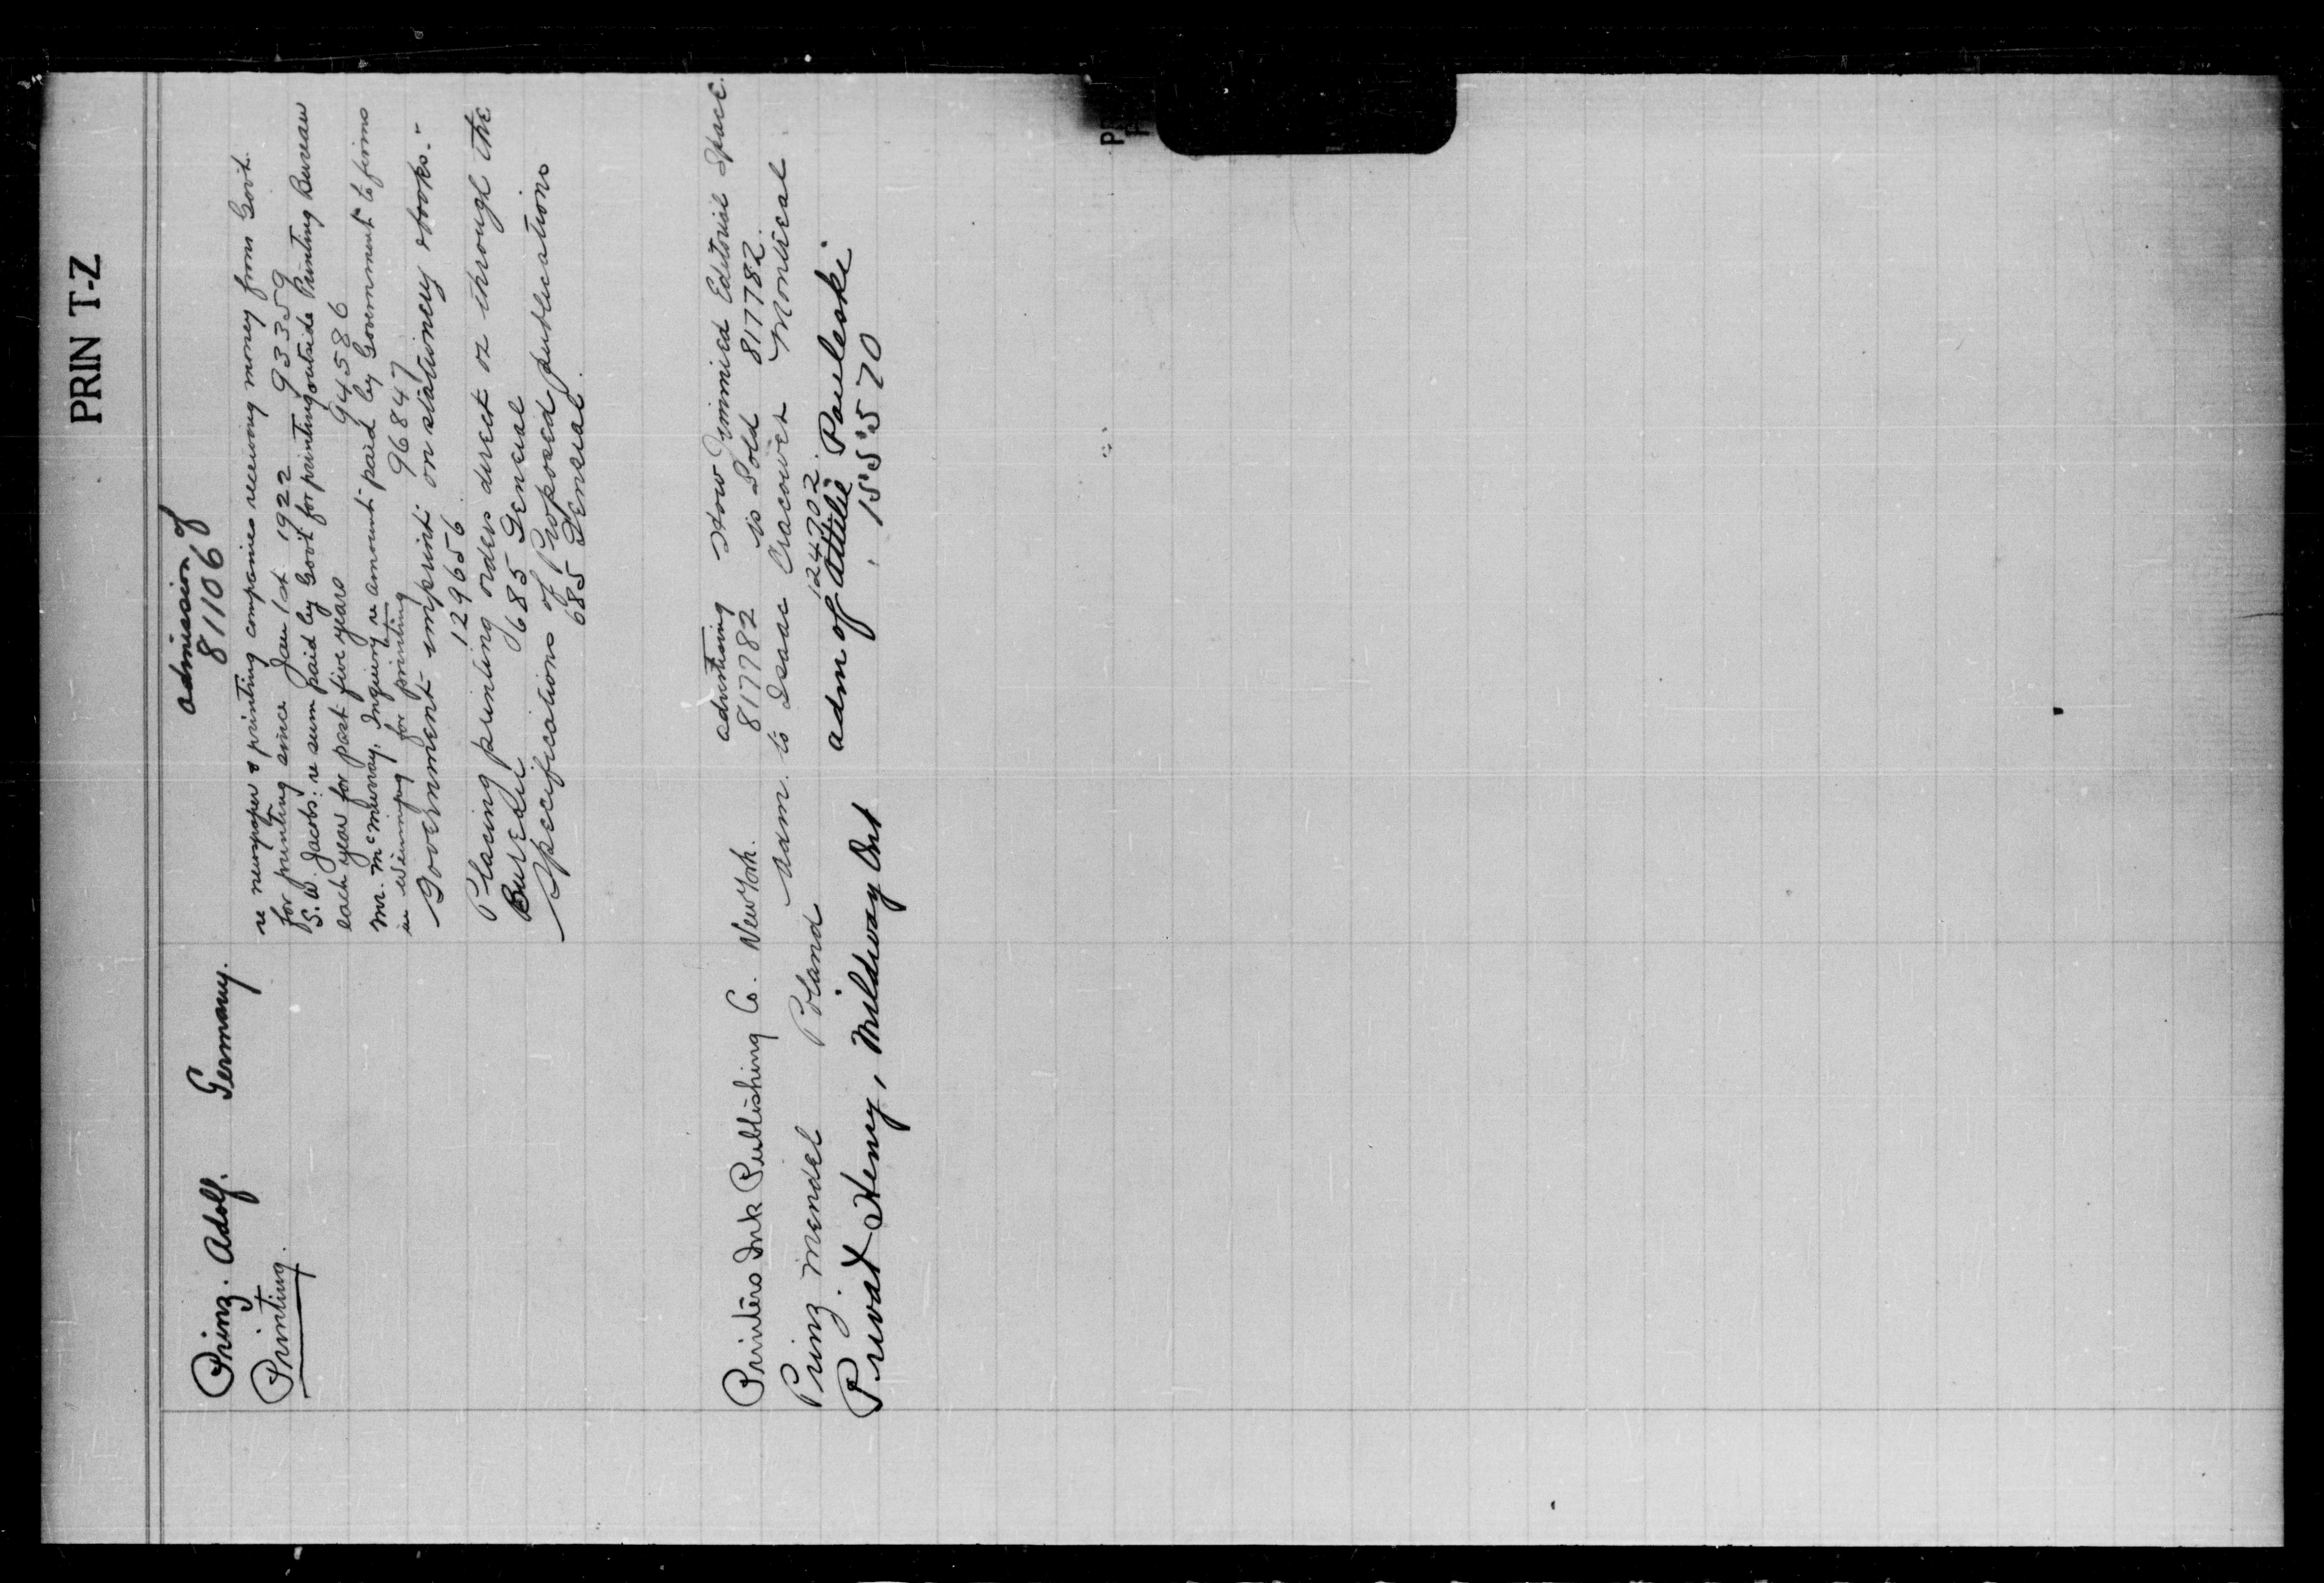 PRIN T-Z
admission of
Prinz. Adolf. Germany. 811068
Printing.
re newspaper & printing companies receiving money from Govt.
for printing since Jan 1st 1922 93359
S. W. Jacobs: re sum paid by Govt for printing outside Printing Bureau
each year for past five years 94586
Mr. McMurray, Inquiry re amount paid by Government to firms
in Winnipeg for printing 96847
Government imprint on stationery stocks.-
129656
Placing printing orders direct or through the
Bureau 685 General
Specifications of Proposed publications
685 General.
Printers Ink Publishing Co. New York. advertising How Jimmied Editorial Space
817782 is Sold 817782.
Prinz. Mendel Poland adm. to Isaac Cracower Montreal
124702.
Privat Henry, Mildway Ont adm of Attilie Pauleski
155570